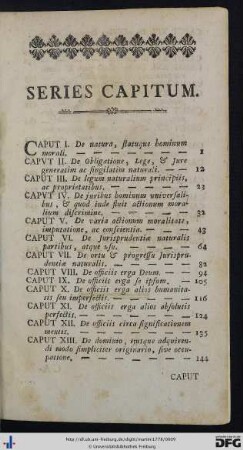 SERIES CAPITUM.
CAPUT I. De natura, statuque hominum
morali. — — — 1
CAPVT II. De Obligatione, Lege, & Jure
generatim ac singillatim naturali. — 12
CAPUT III. De legum naturalium principiis,
ac proprietatibus. — — 23
CAPUT IV. De juribus hominum universali-
bus, & quod inde fluit actionum mora-
lium discrimine. — — 32
CAPUT V. De varia actionum moralitate,
imputatione, ac conscientia. — 43
CAPUT VI. De Jurisprudentiæ naturalis
partibus, atque usu. — — 64
CAPUT VII. De ortu & progressu Jurispru-
dentiæ naturalis. — — 82
CAPUT VIII. De officiis erga Deum. — 94
CAPUT IX. De officiis erga se ipsum. 105
CAPUT X. De officiis erga alios humanita-
tis seu imperfectis. — — 116
CAPUT XI. De officiis erga alios absolutis
perfectis. — — — 124
CAPUT XII. De officiis circa significationem
mentis. — — — 135
CAPUT XIII. De dominio, ejusque adquiren-
di modo simpliciter originario, sive occu-
patione, — — — 144
CAPUT
© Universitätsbibliothek Freiburg